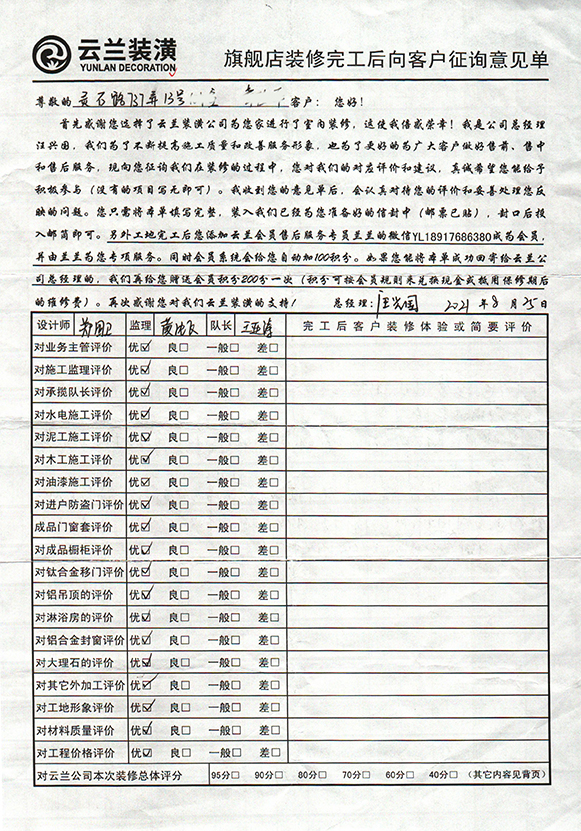 云兰装潢
YUNLAN DECORATION
旗舰店装修完工后向客户征询意见单
尊敬的 灵石路737弄13号 客户：您好！
首先感谢您选择了云兰装潢公司为您家进行了室内装修，这使我倍感荣幸！我是公司总经理
汪兴国，我们为了不断提高施工质量和改善服务形象，也为了更好的为广大客户做好售前、售中
和售后服务，现向您征询我们在装修的过程中，您对我们的对应评价和建议，真诚希望您能给予
积极参与（没有的项目写无即可）。我收到您的意见单后，会认真对待您的评价和妥善处理您反
映的问题。您只需将本单填写完整，装入我们已经为您准备好的信封中（邮票已贴），封口后投
入邮筒即可。另外工地完工后您添加云兰会员售后服务专员兰兰的微信YL18917686380成为会员，
并由兰兰为您专项服务。同时会员系统会给您自动加100积分。如果您能将本单成功回寄给云兰公
司总经理的，我们再给您赠送会员积分200分一次（积分可按会员规则来兑换现金或抵用保修期后
的维修费）。再次感谢您对我们云兰装潢的支持！ 总经理：汪兴国 2021年8月25日
设计师 监理 队长 完工后客户装修体验或简要评价
对业务主管评价 优☑ 良□ 一般□ 差□
对施工监理评价 优☑ 良□ 一般□ 差□
对承揽队长评价 优☑ 良□ 一般□ 差□
对水电施工评价 优☑ 良□ 一般□ 差□
对泥工施工评价 优☑ 良□ 一般□ 差□
对木工施工评价 优☑ 良□ 一般□ 差□
对油漆施工评价 优☑ 良□ 一般□ 差□
对进户防盗门评价 优☑ 良□ 一般□ 差□
成品门窗套评价 优☑ 良□ 一般□ 差□
对成品橱柜评价 优☑ 良□ 一般□ 差□
对钛合金移门评价 优☑ 良□ 一般□ 差□
对铝吊顶的评价 优☑ 良□ 一般□ 差□
对淋浴房的评价 优☑ 良□ 一般□ 差□
对铝合金封窗评价 优☑ 良□ 一般□ 差□
对大理石的评价 优☑ 良□ 一般□ 差□
对其它外加工评价 优☑ 良□ 一般□ 差□
对工地形象评价 优☑ 良□ 一般□ 差□
对材料质量评价 优☑ 良□ 一般□ 差□
对工程价格评价 优☑ 良□ 一般□ 差□
对云兰公司本次装修总体评分 95分□ 90分□ 80分□ 70分□ 60分□ 40分□ （其它内容见背页）